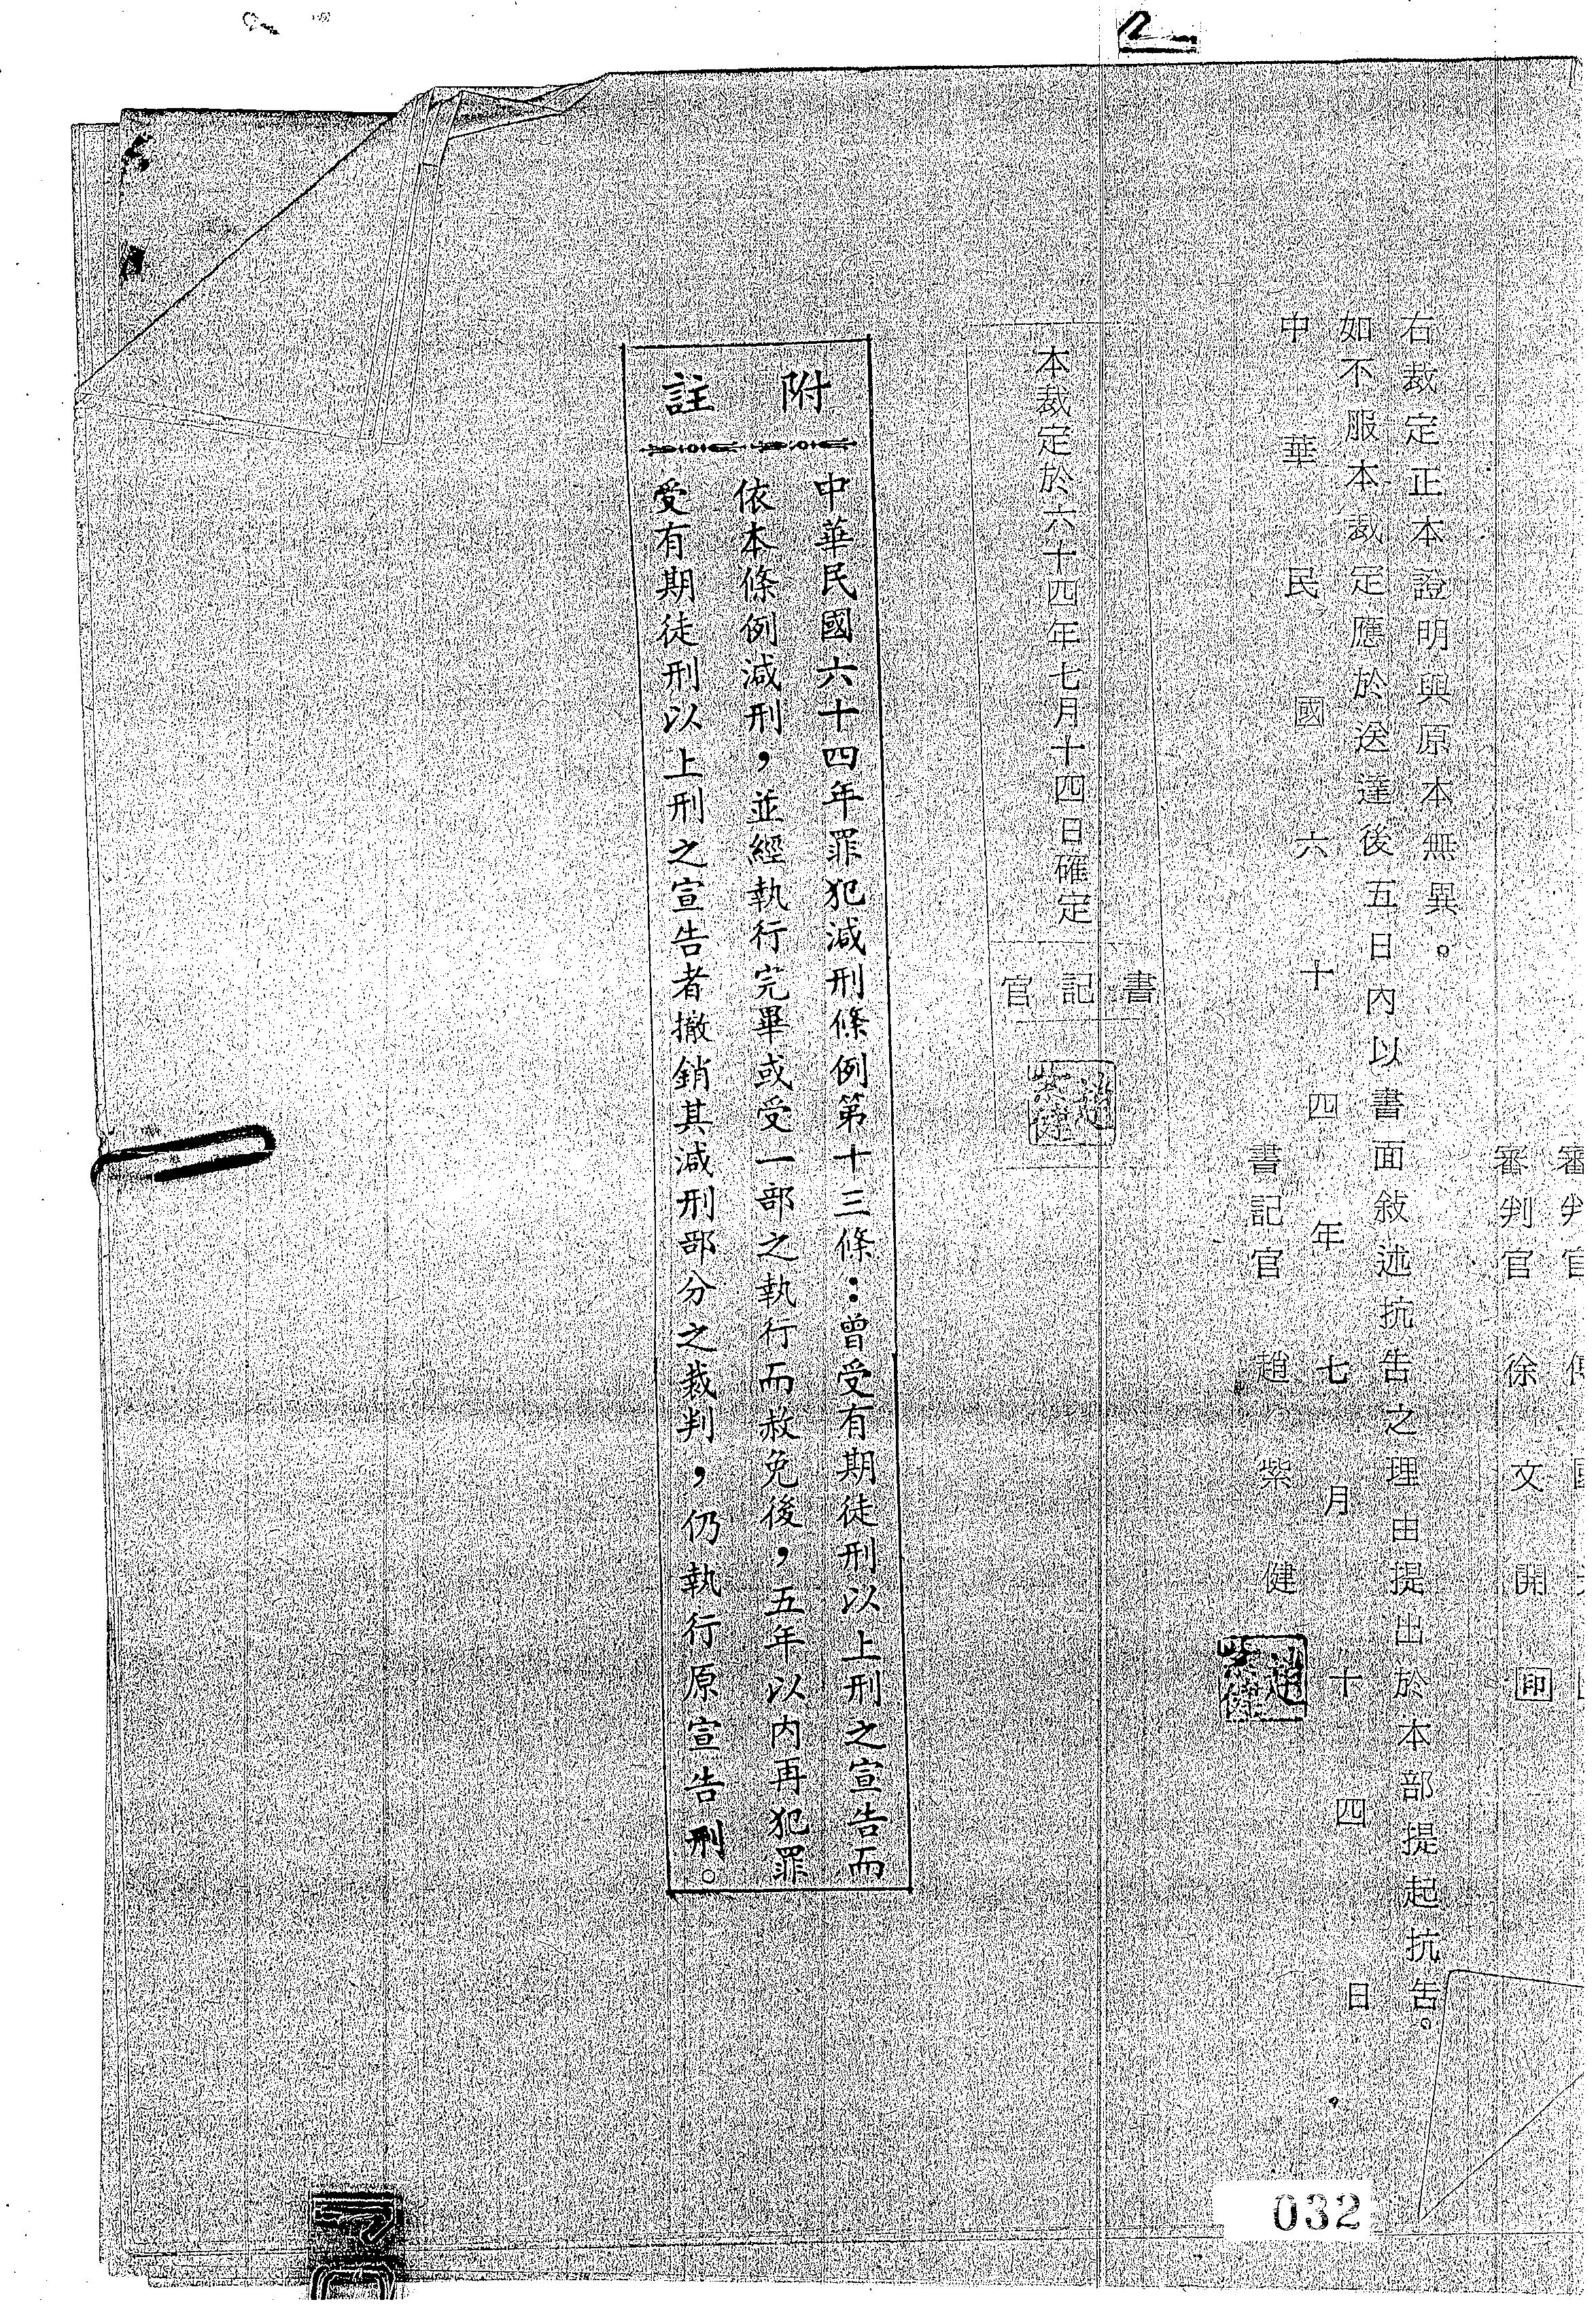 審判官
審判官 徐文開 印
右裁定正本證明與原本無異。
如不服本裁定應於送達後五日內以書面敘述抗告之理由提出於本部提起抗告。
中華民國六十四年七月十四日
書記官 趙紫健
趙紫健
本裁定於六十四年七月十四日確定
書記官
趙紫健
附註
中華民國六十四年罪犯減刑條例第十三條:曾受有期徒刑以上刑之宣告而
依本條例減刑,並經執行完畢或受一部之執行而赦免後,五年以內再犯罪
受有期徒刑以上刑之宣告者撤銷其減刑部分之裁判,仍執行原宣告刑。
032